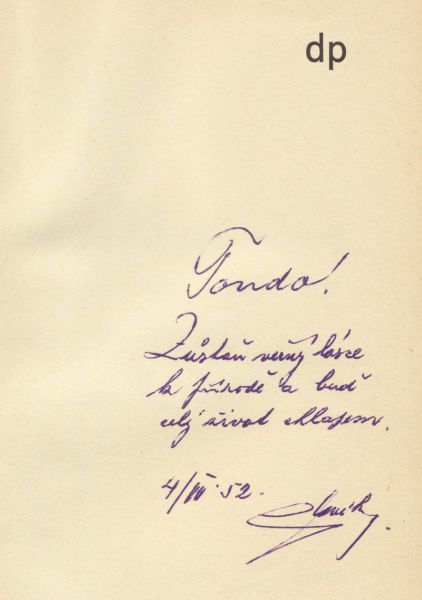 dp
Tondo!
Zůstaň věrný lásce
k přírodě a buď
celý život chlapem.
4/III. 52.